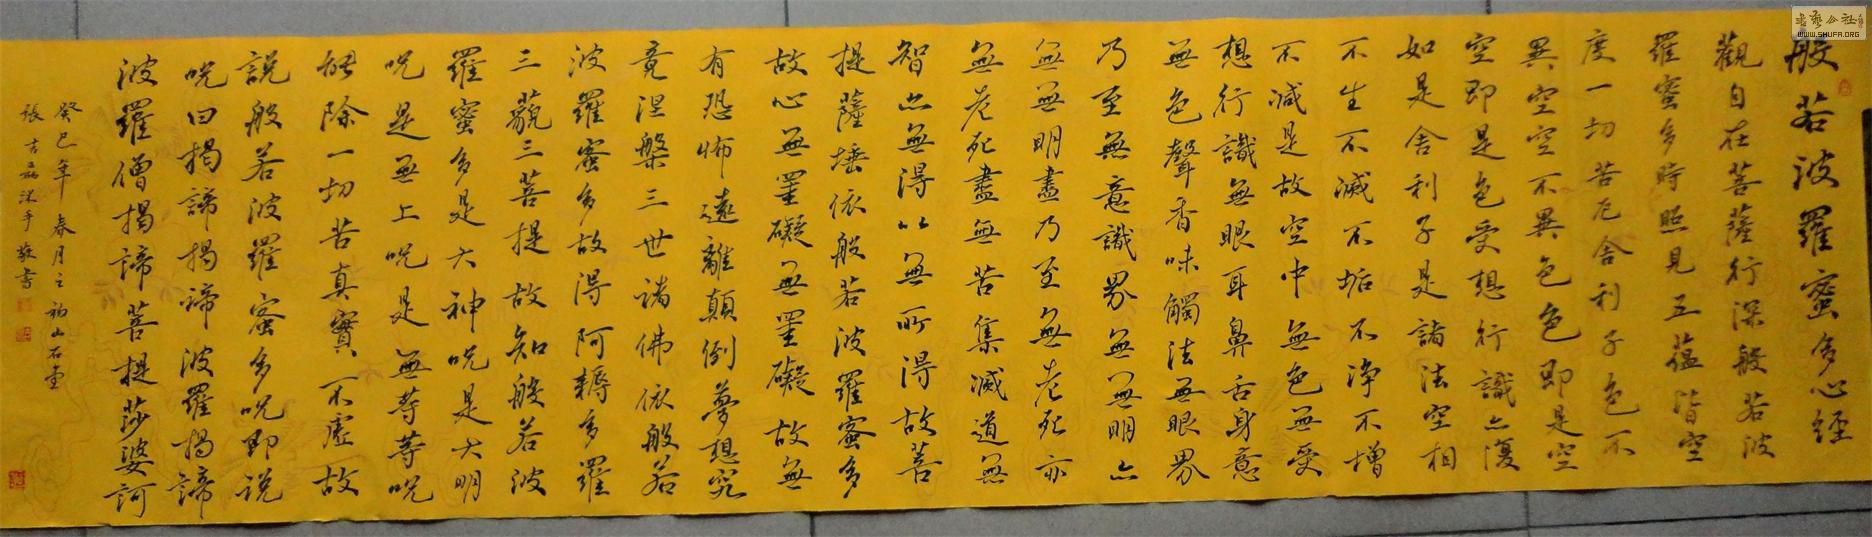 般若波羅蜜多心經
觀自在菩薩行深般若波
羅蜜多時照見五蘊皆空
度一切苦厄舍利子色不
異空空不異色色即是空
空即是色受想行識亦復
如是舍利子是諸法空相
不生不滅不垢不净不增
不減是故空中無色無受
想行識無眼耳鼻舌身意
無色聲香味觸法無眼界
乃至無意識界無無明亦
無無明盡乃至無老死亦
無老死盡無苦集滅道無
智亦無得以無所得故菩
提薩埵依般若波羅蜜多
故心無罣礙無罣礙故無
有恐怖遠離顛倒夢想究
竟涅槃三世諸佛依般若
波羅蜜多故得阿耨多羅
三藐三菩提故知般若波
羅蜜多是大神呪是大明
呪是無上呪是無等等呪
能除一切苦真實不虛故
說般若波羅蜜多呪即说
呪曰揭諦揭諦波羅揭諦
波羅僧揭諦菩提莎婆訶
癸巳年春月之福山石堂
張吉沐手敬書
書藝公社
WWW.SHUFA.ORG